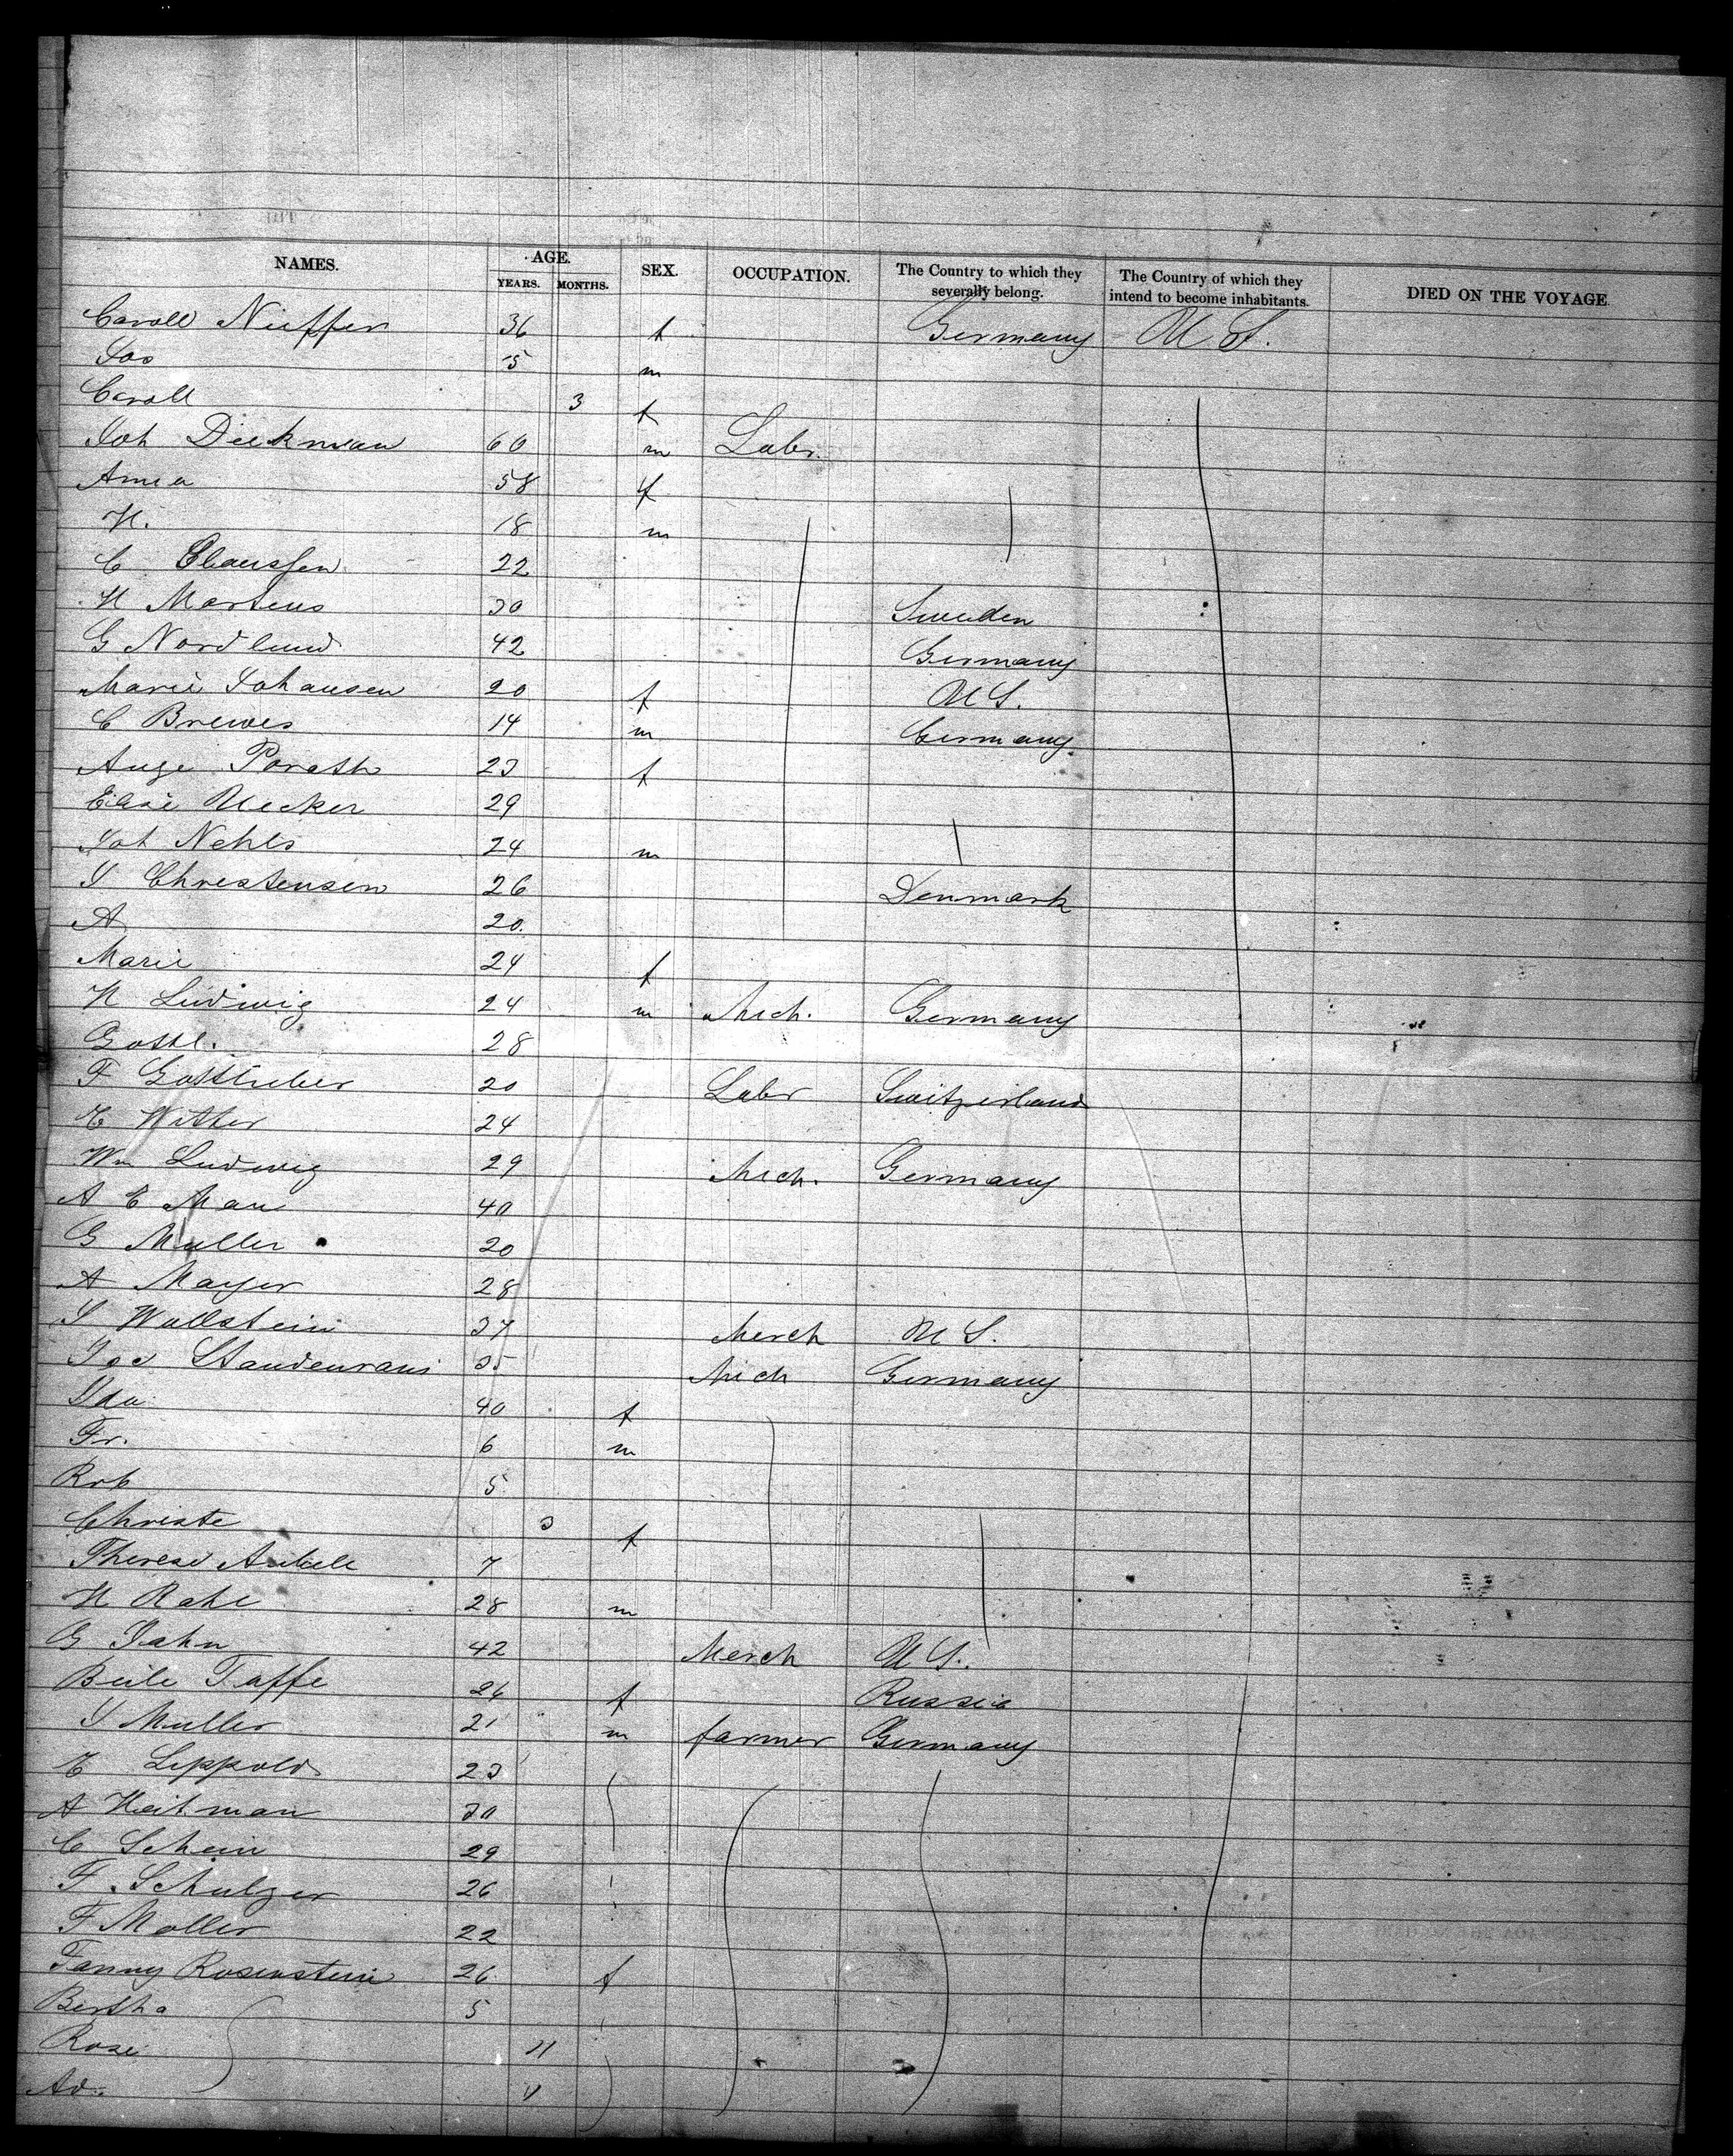 NAMES. AGE. YEARS. MONTHS. SEX. OCCUPATION. The Country to which they severally belong. The Country of which they intend to become inhabitants. DIED ON THE VOYAGE.
Caroll Nieffer 36 f Germany U S.
Jos 5 m
Caroll 3 f
Joh Dieckman 60 m Labr.
Anna 58 f
H. 18 m
C Claussen 22
H Martens 30 Sweden
G Nordlund 42 Germany
Marie Johansen 20 f U S.
C Brewes 14 m Germany.
Auge Porath 23 f
Elise Uecker 29
Joh Nehls 24 m
J Christensen 26 Denmark
A 20
Marie 24 f
H Ludwig 24 m Mech. Germany
Gottl. 28
F Gottlieber 20 Labr Switzerland
E Witter 24
Wm Ludwig 29 Mech. Germany
A E Man 40
G Muller 20
A Mayer 28
J Wallstein 37 Merch U S.
Jos Staudenraus 35 Mech Germany
Ida 40 f
Fr. 6 m
Rob 5
Christe 3 f
Therese 7
H Rahe 28 m
G Jahn 42 Merch U S.
Beile Taffe 26 f Russia
J Muller 21 m farmer Germany
E Leppold 23
A Heitman 30
C Schein 29
F. Schulzer 26
F Moller 22
Fanny Rosenstein 26 f
Bertha 5
Rose 11
Ad. 11